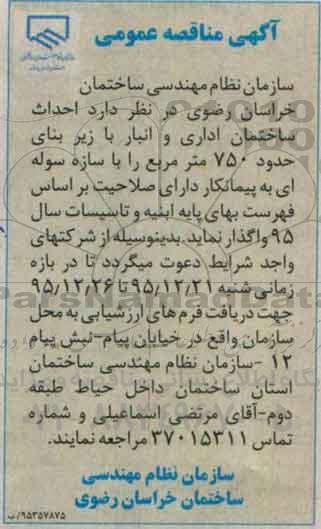 آگهی مناقصه عمومی
سازمان نظام مهندسی ساختمان
خراسان رضوی در نظر دارد احداث
ساختمان اداری و انبار با زیر بنای
حدود ۷۵۰ متر مربع را با سازه سوله
ای به پیمانکار دارای صلاحیت بر اساس
فهرست بهای پایه ابنیه و تاسیسات سال
۹۵ واگذار نماید.بدینوسیله از شرکتهای
واجد شرایط دعوت میگردد تا در بازه
زمانی شنبه ۹۵/۱۲/۲۱ تا ۹۵/۱۲/۲۶
جهت دریافت فرم های ارزشیابی به محل
سازمان واقع در خیابان پیام-نبش پیام
۱۲ -سازمان نظام مهندسی ساختمان
استان ساختمان داخل حیاط طبقه
دوم-آقای مرتضی اسماعیلی و شماره
تماس ۳۷۰۱۵۳۱۱ مراجعه نمایند.
سازمان نظام مهندسی
ساختمان خراسان رضوی
۹۵۳۵۷۸۷۵/ب
ParsNamadData